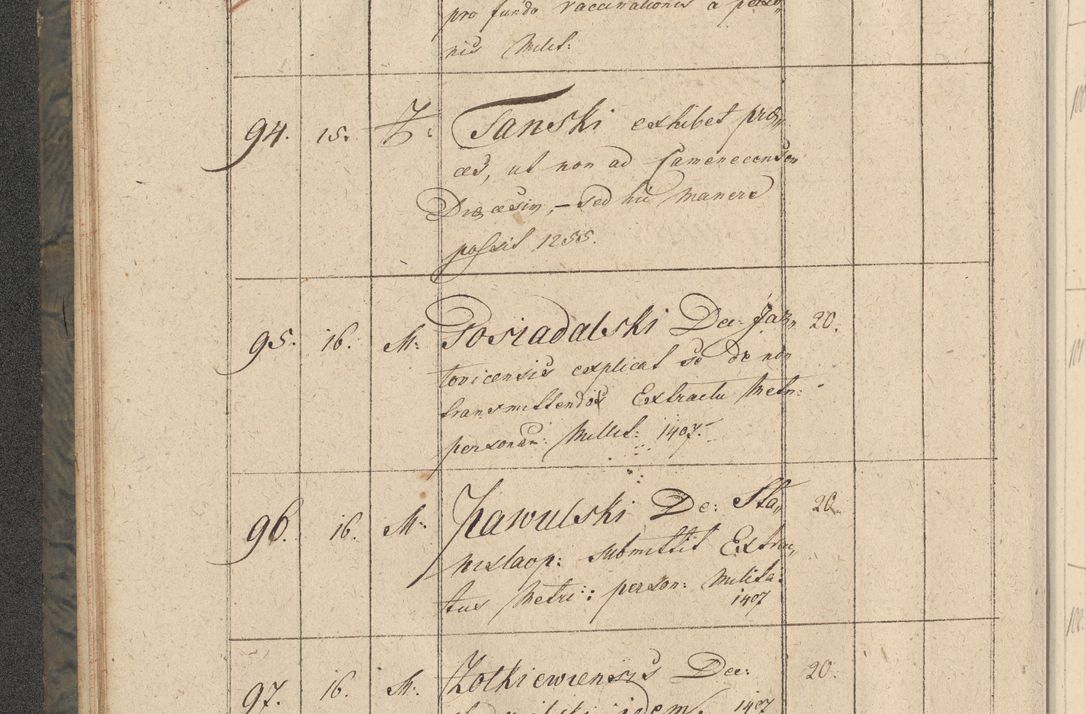 pro fundo vaccinationis a perso„
nis Milit:
94. 15. T: Tanski exhibet prę„
ces, ut non ad Camenecensem
Diœcesim, – sed hic manere
possit 1255.
95. 16. M: Posiadalski Dec: Jaz„ 20.
lovicensis explicat se de non
transmittendis Extractu Metr:
personar: Millit: 1407.
96. 16. M: Zawulski De: Sta„ 20.
nislaop: submittit Extrac„
tus Metri: person: Milita:
1407
97. 16. M: Zolkiewiensis Dec: 20.
idem. 1407